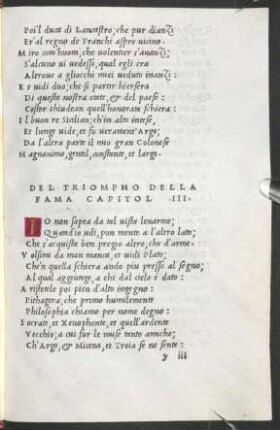 Poi'l duca di Lancastro; che pur dianzi
Er'al regno de Franchi aspro uicino.
Miro com'huom, che uolentier s'auanzi;
S'alcuno ui uedessi, qual egli era
Altroue a gliocchi miei ueduto inanzi:
E uidi duo; che si partir hiersera
Di questa nostra etate, & del paese:
Costor chiudean quell'honorata schiera:
Il buon re Sicilian; ch'in alto intese,
Et lunge uide, et fu ueramente Argo;
Da l'altra parte il mio gran Colonnese
Magnanimo, gentil, constante, et largo.
DEL TRIOMPHO DELLA
FAMA CAPITOL .III.
IO non sapea da tal uista leuarme;
Quand'io udi, pon mente a l'altro lato;
Che s'acquista ben pregio altro, che d'arme.
Volsimi da man manca, et uidi Plato;
Che'n quella schiera andò piu presso al segno;
Al qual aggiunge, a chi dal cielo è dato:
Aristotele poi pien d'alto ingegno:
Pithagora, che primo humilemente
Philosophia chiamò per nome degno:
Socrate, et Xenophonte, et quell'ardente
Vecchio; a cui fur le muse tanto amiche;
Ch'Argo, & Micena, et Troia se ne sente:
y iii